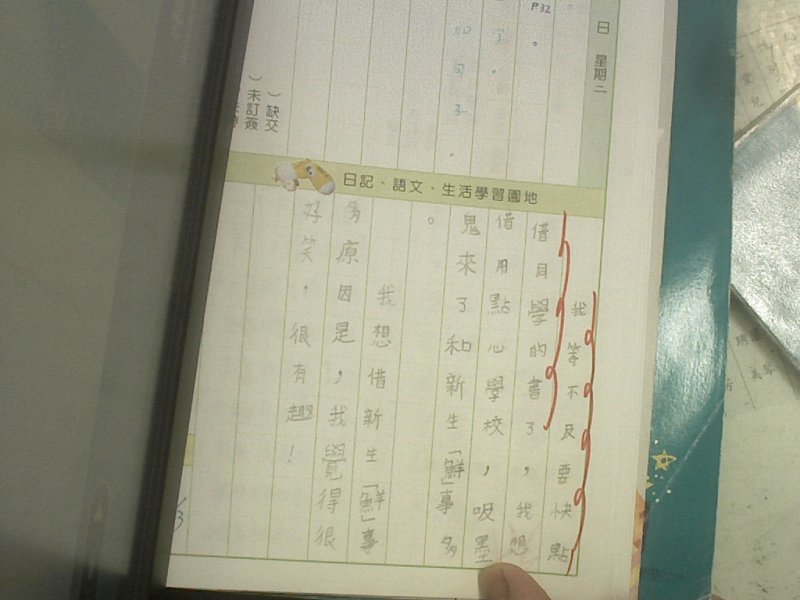 P.32
日 星期二
了。
加句子.
）缺交
）未訂簽
日記、語文、生活學習園地
我等不及要快點
借同學的書了，我想
借用點心學校，吸墨
鬼來了和新生「鮮」事多
。
我想借新生「鮮」事
多原因是，我覺得很
好笑．很有趣！